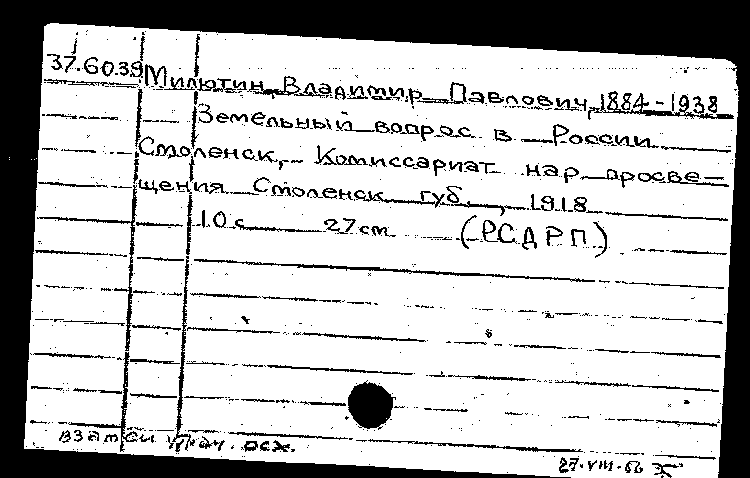 37.6039 Милютин, Владимир Павлович, 1884-1938
Земельный вопрос в России
Смоленск, Комиссариат нар просве-
щения Смоленск губ., 1918
10 с 27 cm (РСДРП)
27.VIII.56